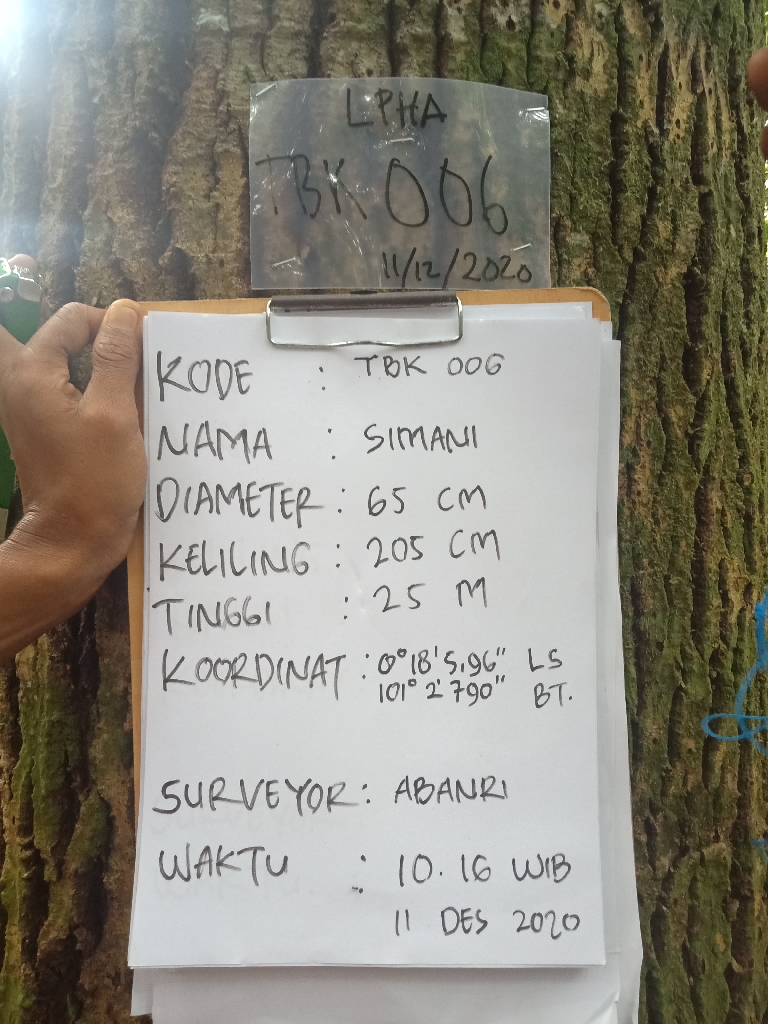 LPHA
TBK 006
11/12/2020
KODE : TBK 006
NAMA : SIMANI
DIAMETER : 65 CM
KELILING : 205 CM
TINGGI : 25 M
KOORDINAT : 0°18'5.96" LS
101° 2' 790" BT.
SURVEYOR : ABANRI
WAKTU : 10.16 WIB
11 DES 2020